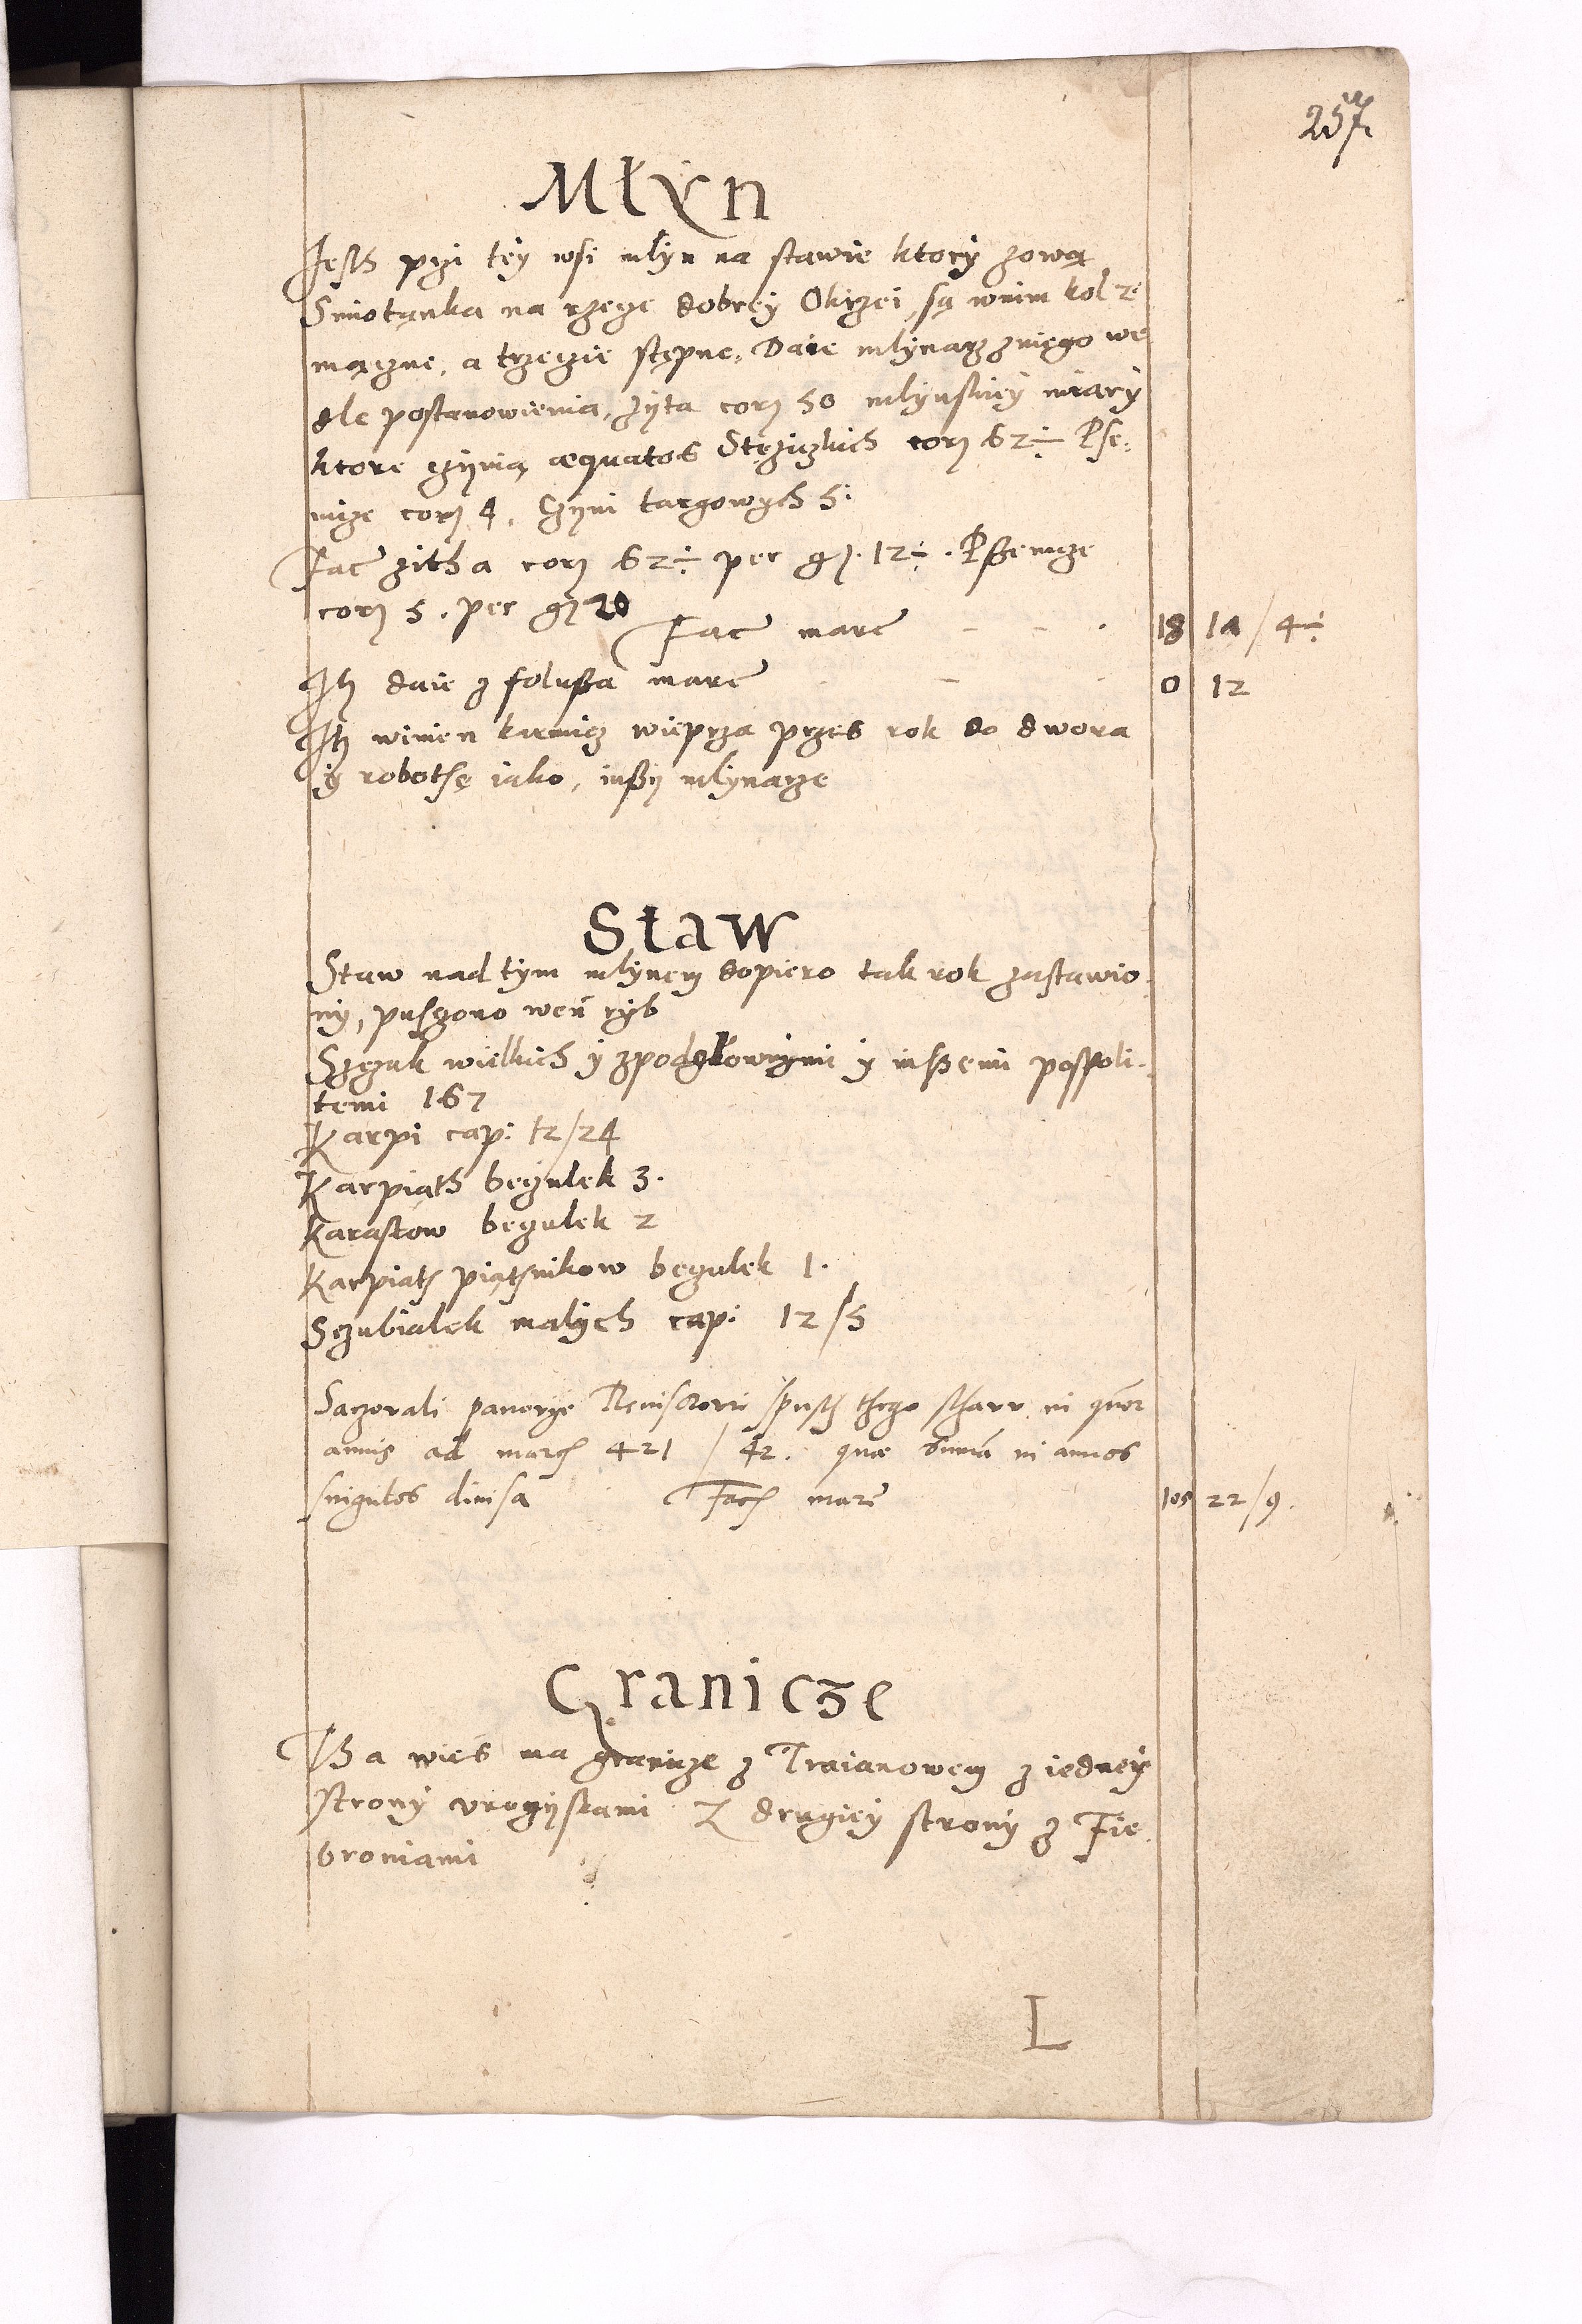 257
Młyn
Jesth przi tey wsi młyn na stawie ktory zową
Smotanka na rzecze dobrey Okrzei, są wnim kol 2
mączne, a trzeczie stępne, Daie młynarz zniego we
dle postanowienia, żyta corz 50 młynskiey miary
ktore czynią aequatos Stęziczkich corz 62÷ Psze:
nicze corz 4, Czyni targowych 5:
Fac zitha corz 62÷ per gr. 12÷. Pszenicze
corz 5. per gr 20
Fac marc 18 14/4÷
Ith daie z folusza marc 0 12
Ith winien karmicz wieprza przes rok do dwora
y robothę iako, inszy młynarze
Staw
Staw nad tym młynem dopiero tak rok zastawio
ny, pusczono weń ryb
Sczczuk wielkich y zpodgłownymi y inszemi pospoli-
temi 167
Karpi cap: 12/24
Karpiąth beczulek 3.
Karasiow beczulek 2
Karpiąth piąthnikow beczulek 1.
Sczubialek malych cap: 12/5
Saczowali panowye Rewisorowie spusth thego sthawu in quor
annis ad march 421/42. quae summa in annos
singulos divisa Fach marc 105 22/9.
Granicze
Tha wies ma granicze z Traianowem z iedney
strony uroczyskami Z drugiey strony z Fie
broniami
L